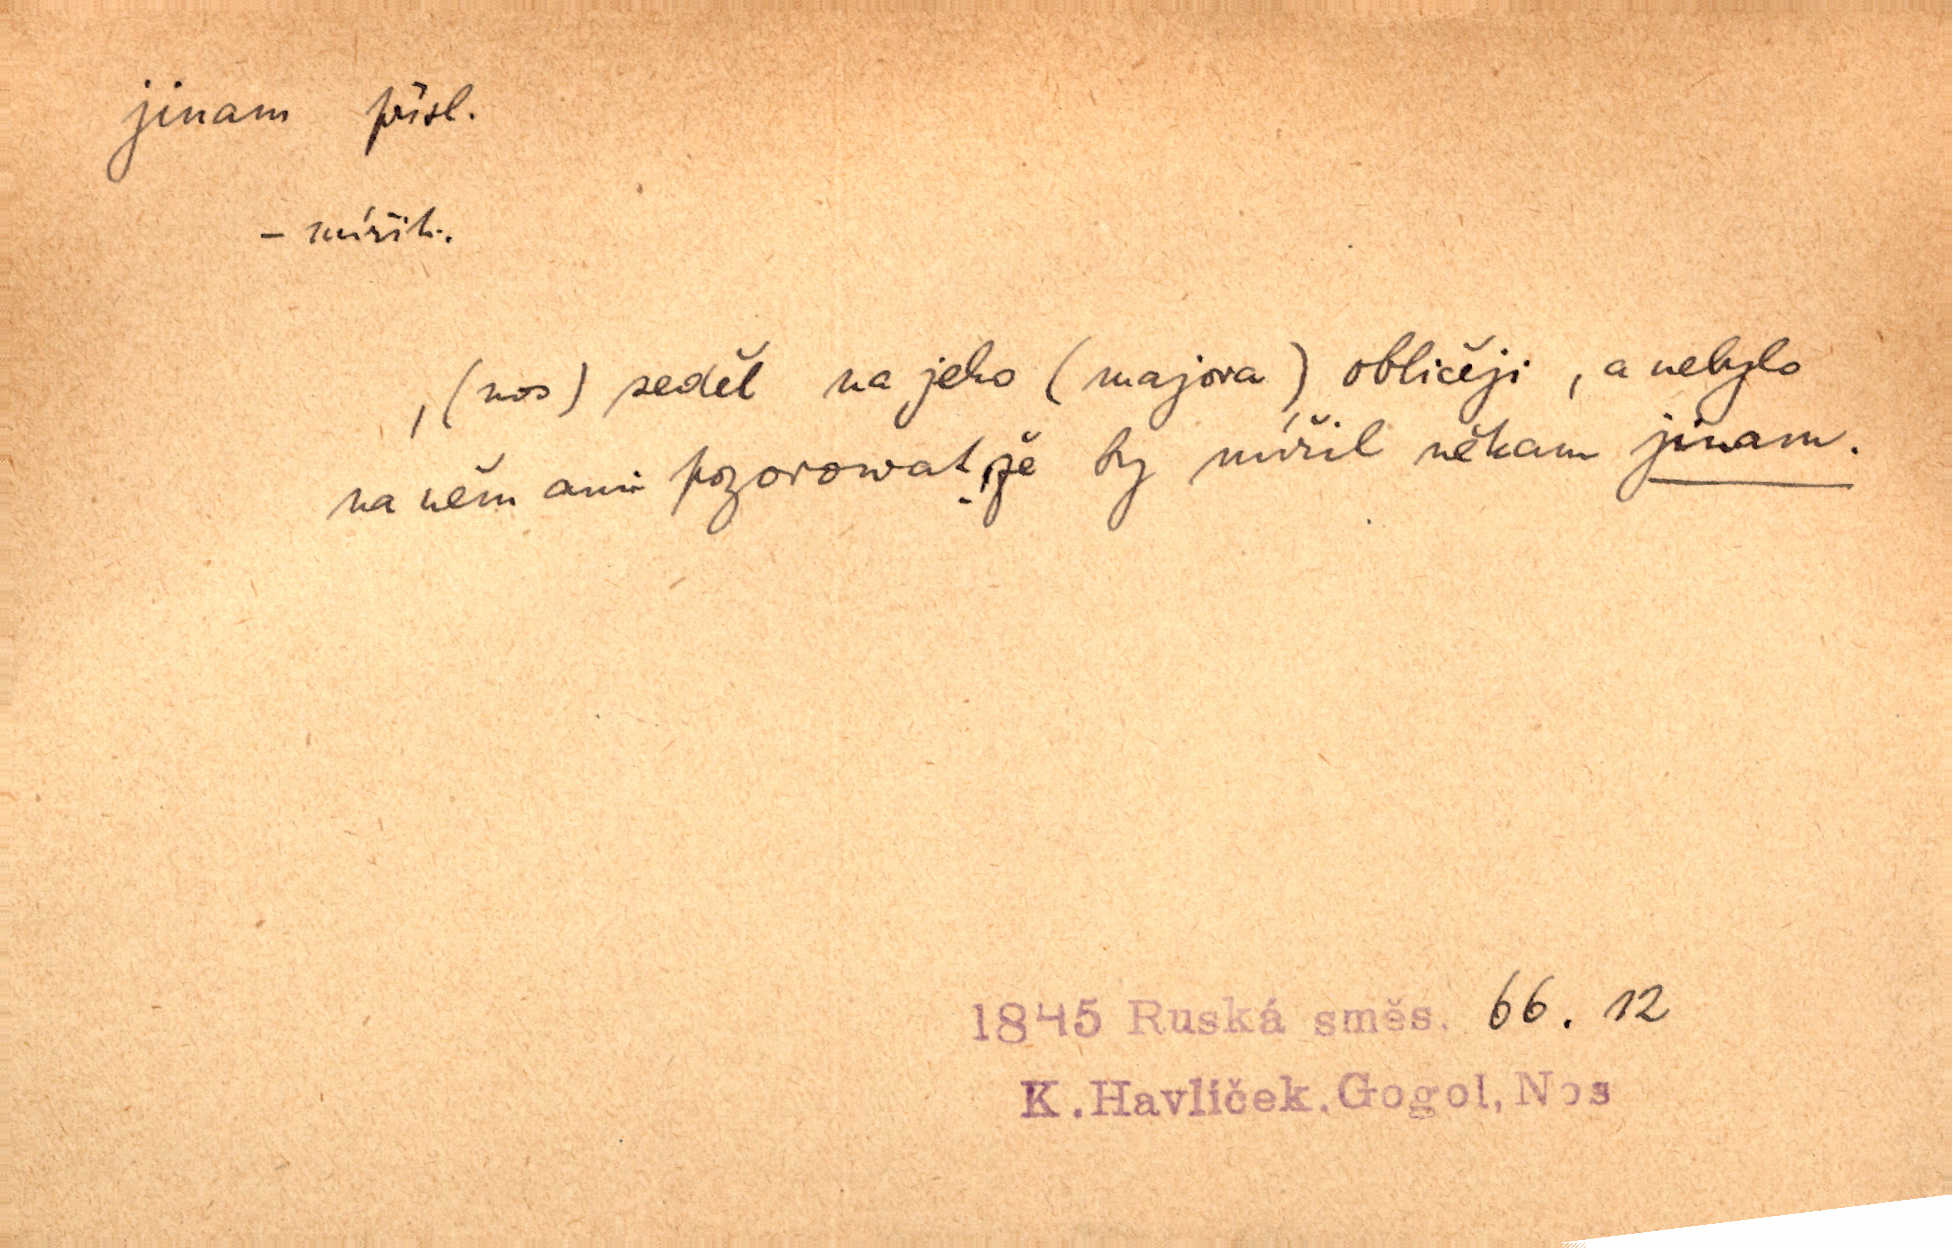 jinam přísl.
- mířiti.
, (nos) seděl na jeho (majora) obličeji, a nebylo
na něm ani pozorowat, že by mířil někam jinam.
1845 Ruská směs. 66. 12
K. Havlíček, Gogol, Nos